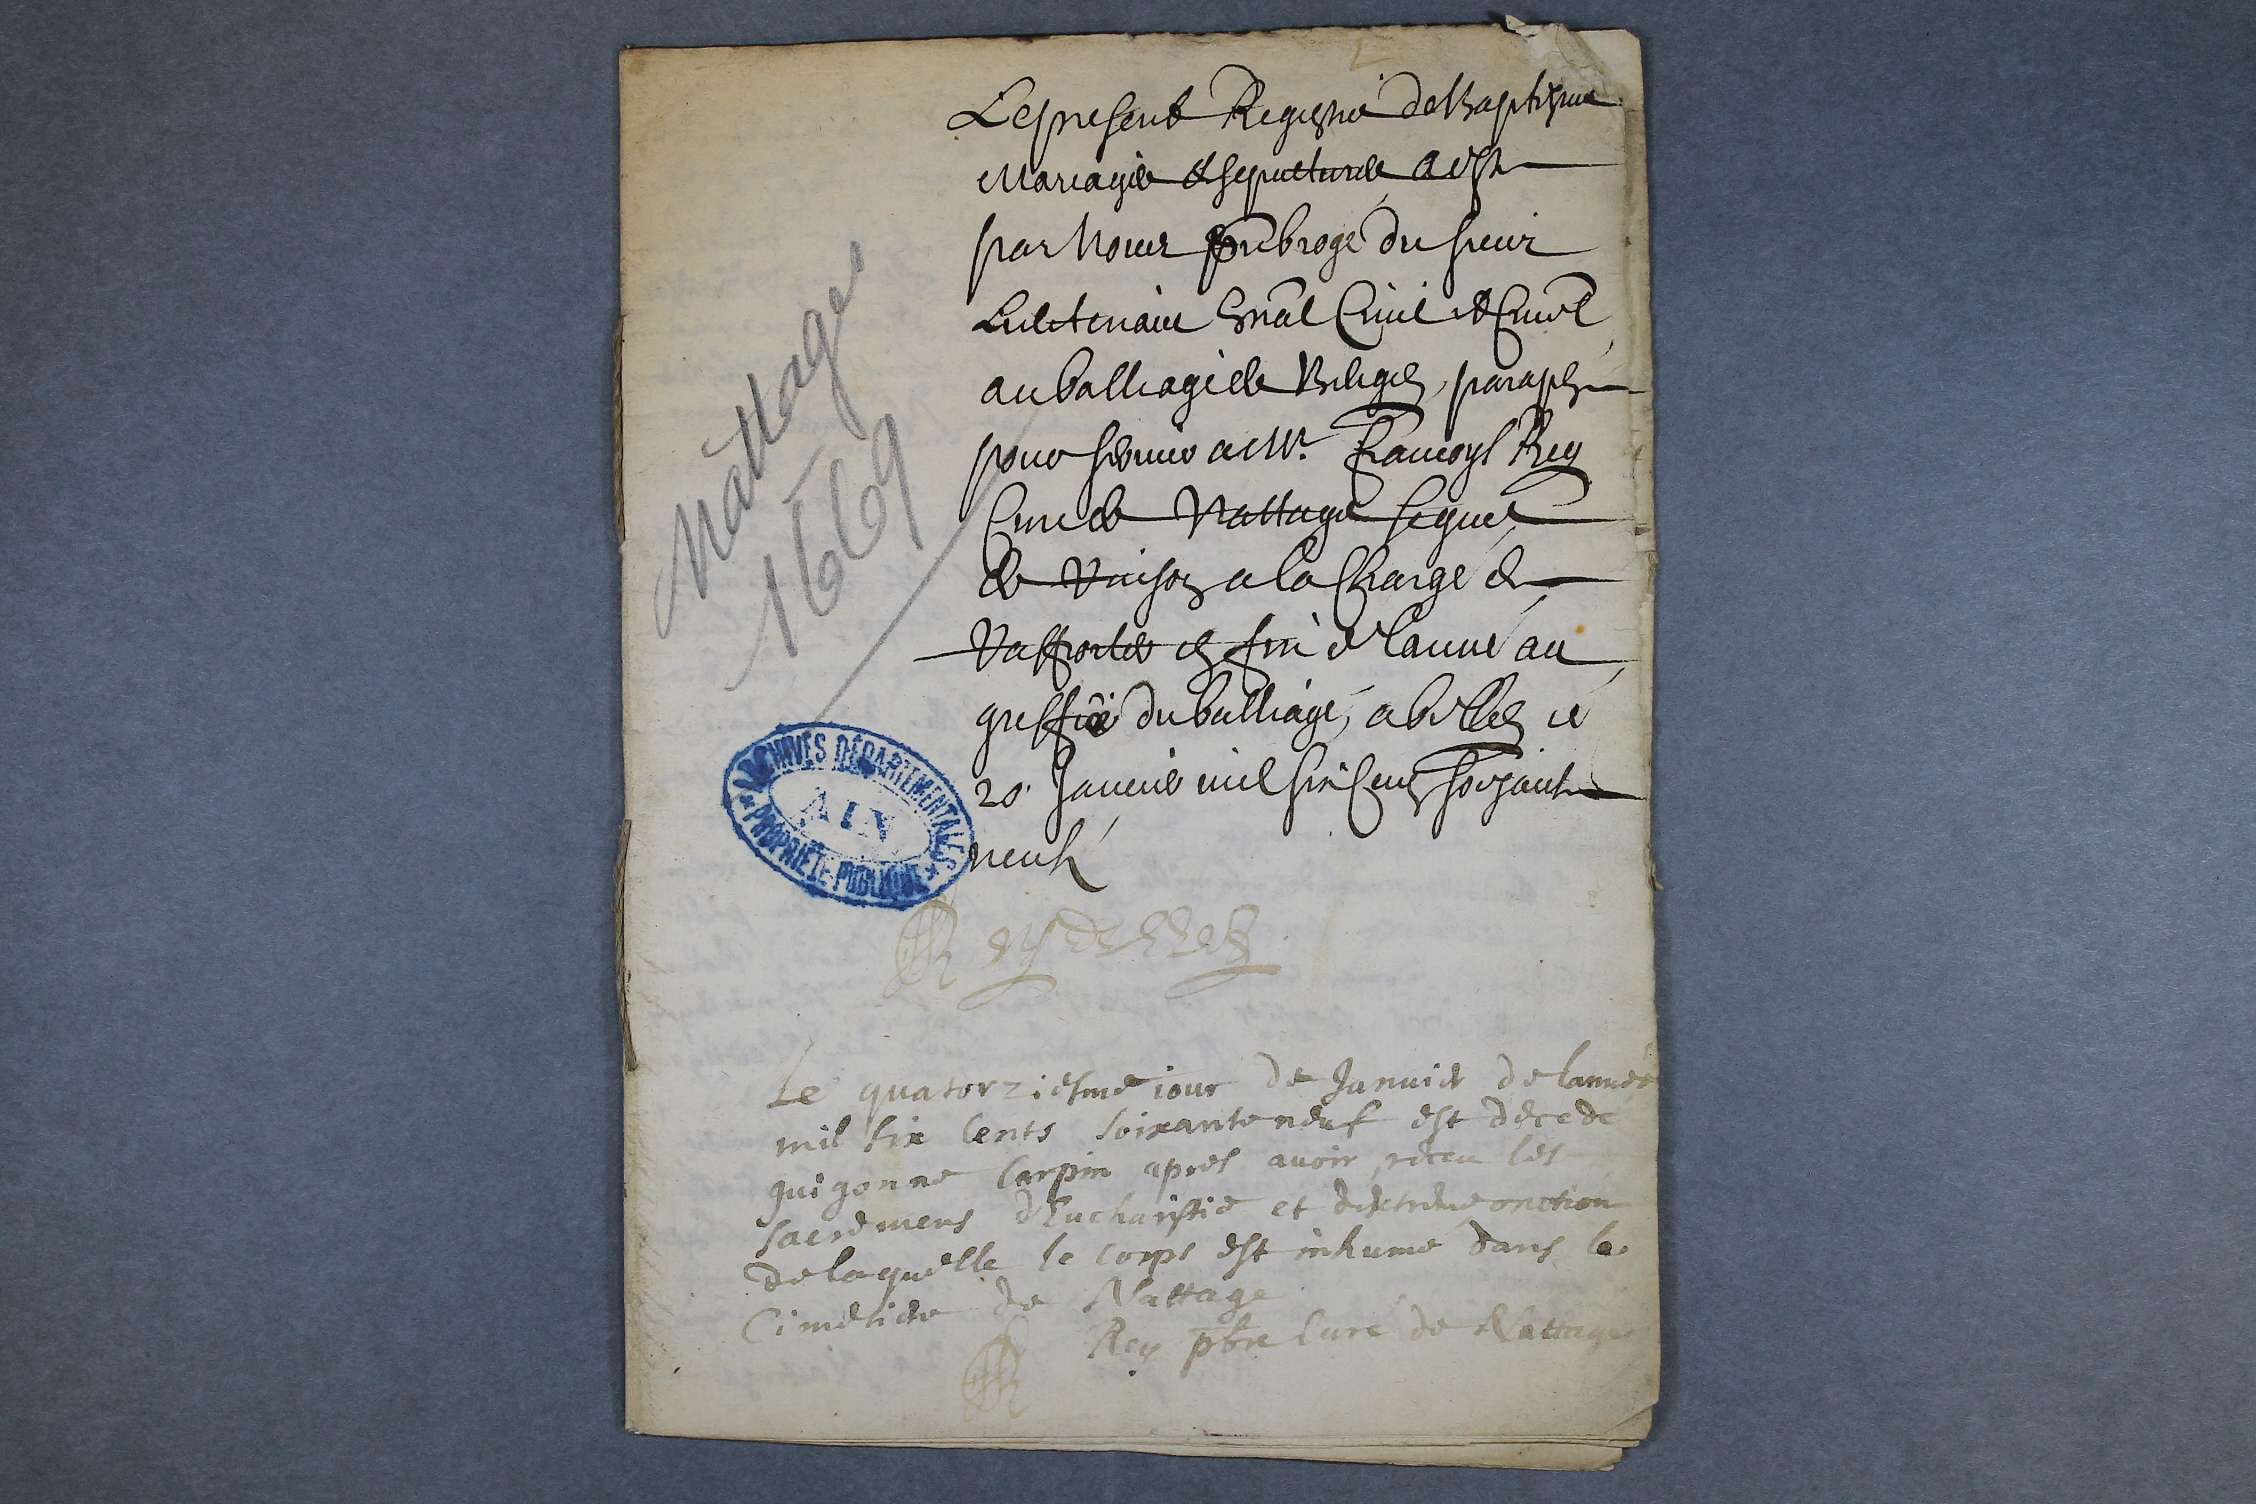 Le present Registre de Baptisme
Mariage et sepulture a esté
par Nous du
Lieutenant gnal Civil et Crimel
au balliage de paraphé
pour servir a Mr. Francoys Rey
Curé de Nattage
de a la Charge de
rapporter en fin de lannée au
greffe du balliage, a belley ce
20. Janvier mil six cens soixante
neuf
Nattages
1669
ARCHIVES DÉPARTEMENTALES
AIN
PROPRIÉTÉ PUBLIQUE
Le quatorziesme iour de Januier de lannéé
mil six cents soixante neuf est decede
guigonne Carpin apres auoir receu les
sacremens dEucharistie et dextreme onction
de laquelle le corps est inhumé dans le
Cimetiere de Nattage
Rey pbre Curé de Nattage